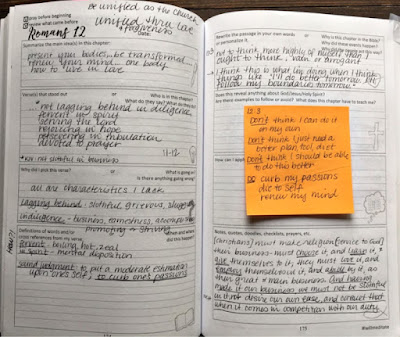 be unified as the church
unified thru love
+ forgiveness
pray before beginning
review what came before
Date:
Romans 12
Summarize the main point(s) in this chapter:
present your bodies... be transformed
renew your mind... one body
how to live in love
Verse(s) that stood out or Who is in this chapter?
What do they say? What do they
* not lagging behind in diligence,
fervent in spirit
serving the Lord
rejoicing in hope
persevering in tribulation
devoted to prayer
11-12
* KJV not slothful in business
Why did I pick this verse? or What is going on?
Is there anything going wrong?
all are characteristics I lack
lagging behind - slothful, grievous,
indulgence - business, earnestness,
promoting or striving
Definitions of words and/or
cross references from my verse:
When and where
did this happen?
fervent - boiling hot, zeal
in Spirit - mental disposition
sound judgment to put a moderate estimation
upon one's self, to curb one's passions
175
Rewrite the passage in your own words
or personalize it.
or Why is this chapter in the Bible?
Why did these events happen?
not to think more highly of himself than he
ought to think; vain or arrogant
I think this is what I'm doing when I think
things like "I'll do better tomorrow, I'll
follow my boundaries tomorrow."
Does this reveal anything about God/Jesus/Holy Spirit?
Are there examples to follow or avoid? What does this chapter have to teach me?
12:3
Don't think I can do it
on my own
Don't think I just need a
better plan, tool, diet
Don't think I should be able
to do this better
DO curb my passions
die to self
renew my mind
How can I apply
Notes, quotes, doodles, checklists, prayers, etc.
[Christians] must make religion [service to God]
their business - must choose it, and learn it, &
give themselves to it; they must love it, and
employ themselves in it, and abide by it, as
their great & main business. And having
made it our business, we must not be slothful
in it, not desire our own ease, and consult that
when it comes in competition with our duty.
173